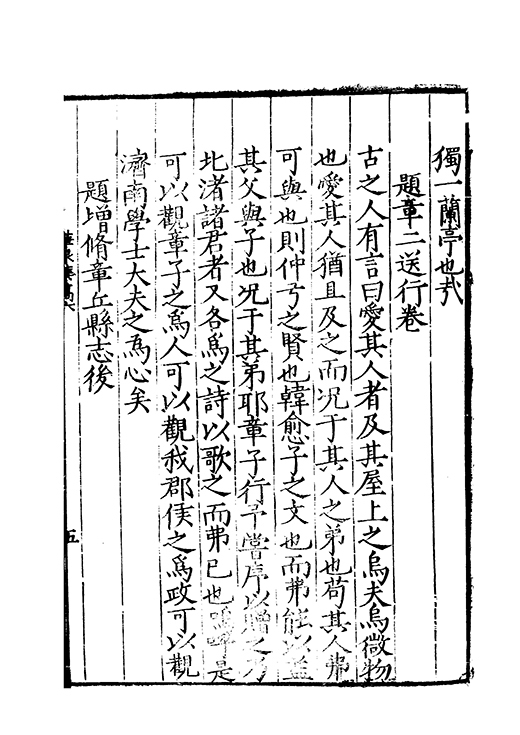 獨一蘭亭也哉
題章二送行卷
古之人有言曰愛其人者及其屋上之烏夫烏微物
也愛其人猶且及之而况于其人之弟也苟其人弗
可與也則仲弓之賢也韓愈子之文也而弗能以蓋
其父與子也况于其弟耶章子行予嘗序以贈之乃
北渚諸君者又各爲之詩以歌之而弗已也嗚呼是
可以觀章子之爲人可以觀我郡侯之爲政可以觀
濟南學士大夫之爲心矣
題增脩章丘縣志後
五